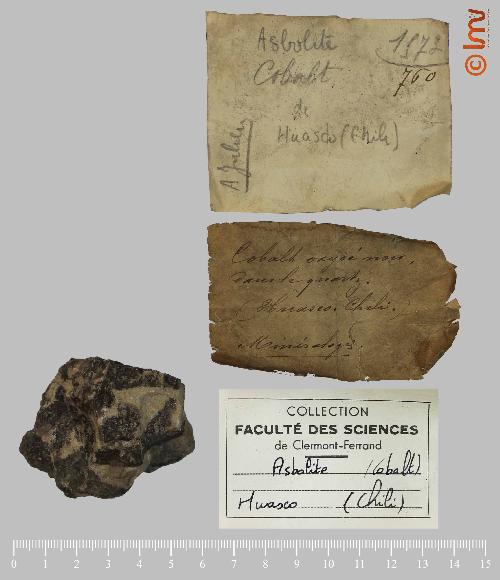 Asbolite 1572
Cobalt 760
de
Huasco (Chili)
A Julien
© lmv
Cobalt oxidé noir,
dans le quartz.
(Huasco. Chili.)
Minéralogie.
COLLECTION
FACULTÉ DES SCIENCES
de Clermont-Ferrand
Asbolite (Cobalt)
Huasco (Chili)
0 1 2 3 4 5 6 7 8 9 10 11 12 13 14 15